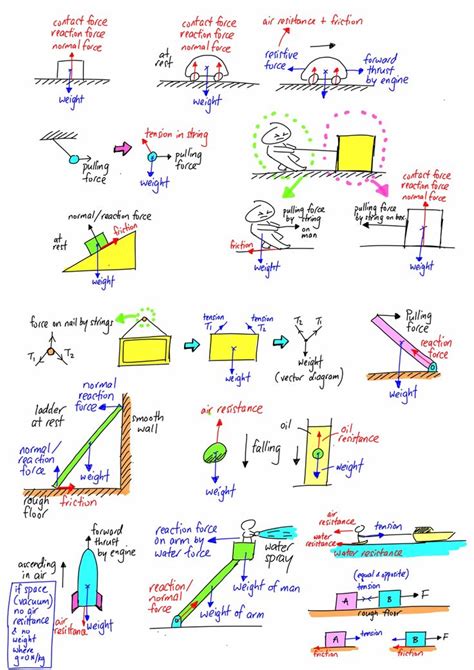 contact force
reaction force
normal force
weight
contact force
reaction force
normal force
at
rest
weight
air resistance + friction
resistive
force
forward
thrust by engine
weight
pulling
force
tension in string
pulling
force
weight
contact force
reaction force
normal force
normal/reaction force
friction
at
rest
weight
pulling force
by string
on
man
friction
weight
pulling force
by string on box
weight
force on nail by strings
T1
T2
tension
T1
tension
T2
weight
T1
T2
weight
(vector diagram)
Pulling
force
reaction
force
weight
normal
reaction
force
ladder
at rest
smooth
wall
normal/
reaction
force
weight
rough
floor
friction
air resistance
falling
weight
oil
oil
resistance
weight
forward
thrust
by engine
ascending
in air
if space
(vacuum)
no air
resistance
& no
weight
where
g=0N/kg
air
resistance
weight
reaction force
on arm by
water force
water
spray
weight of man
reaction/
normal
force
weight of arm
air
resistance
tension
water
resistance
water resistance
(equal & opposite)
tension
A
B
F
rough floor
tension
A
B
F
friction
friction